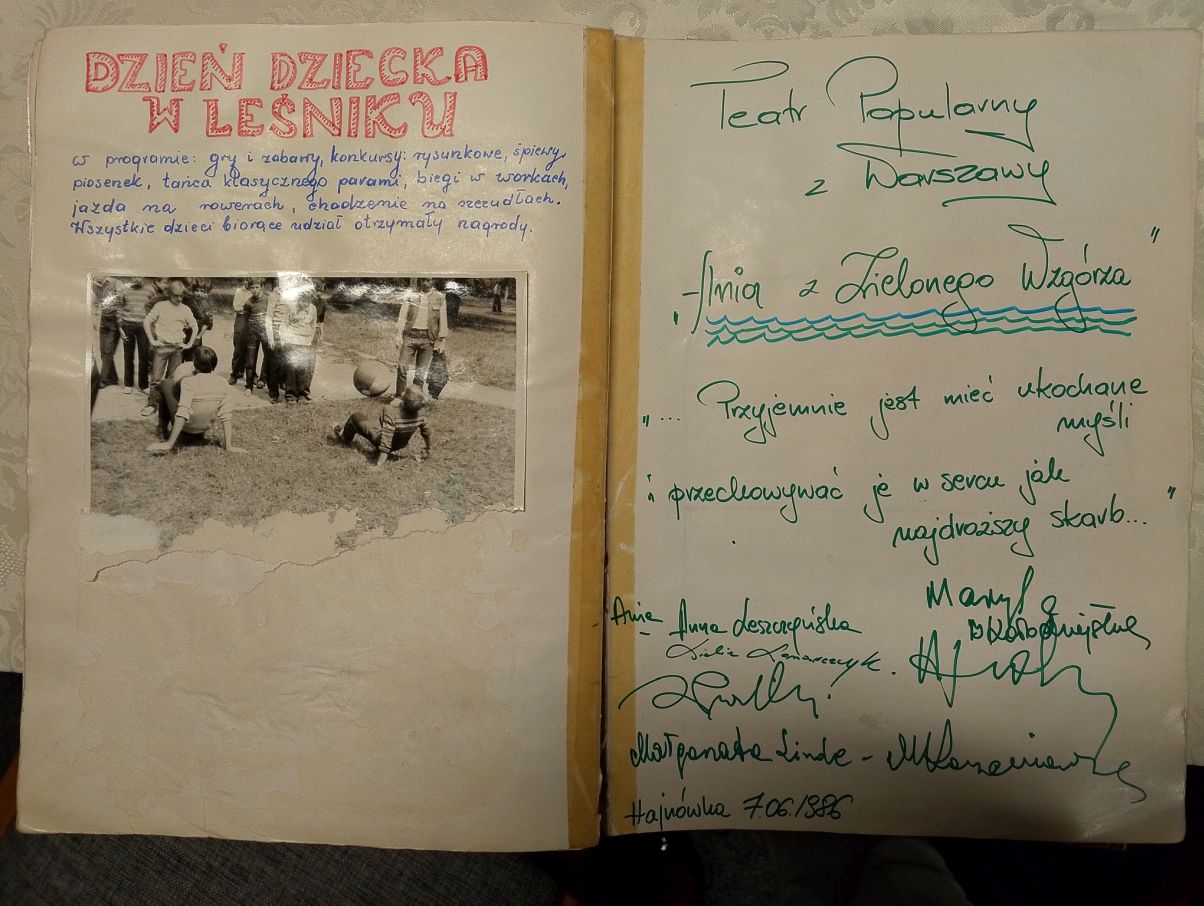 DZIEŃ DZIECKA
W LEŚNIKU
w programie: gry i zabawy, konkursy: rysunkowe, śpiewy,
piosenek, tańca klasycznego parami, biegi w workach,
jazda na rowerach, chodzenie na szczudłach.
Wszystkie dzieci biorące udział otrzymały nagrody.
Teatr Popularny
z Warszawy
"Ania z Zielonego Wzgórza"
"... Przyjemnie jest mieć ukochane
myśli
i przechowywać je w sercu jak
najdroższy skarb..."
Ania - Anna Leszczyńska
Maryla
Małgorzata Linde -
Hajnówka 7.06.1986